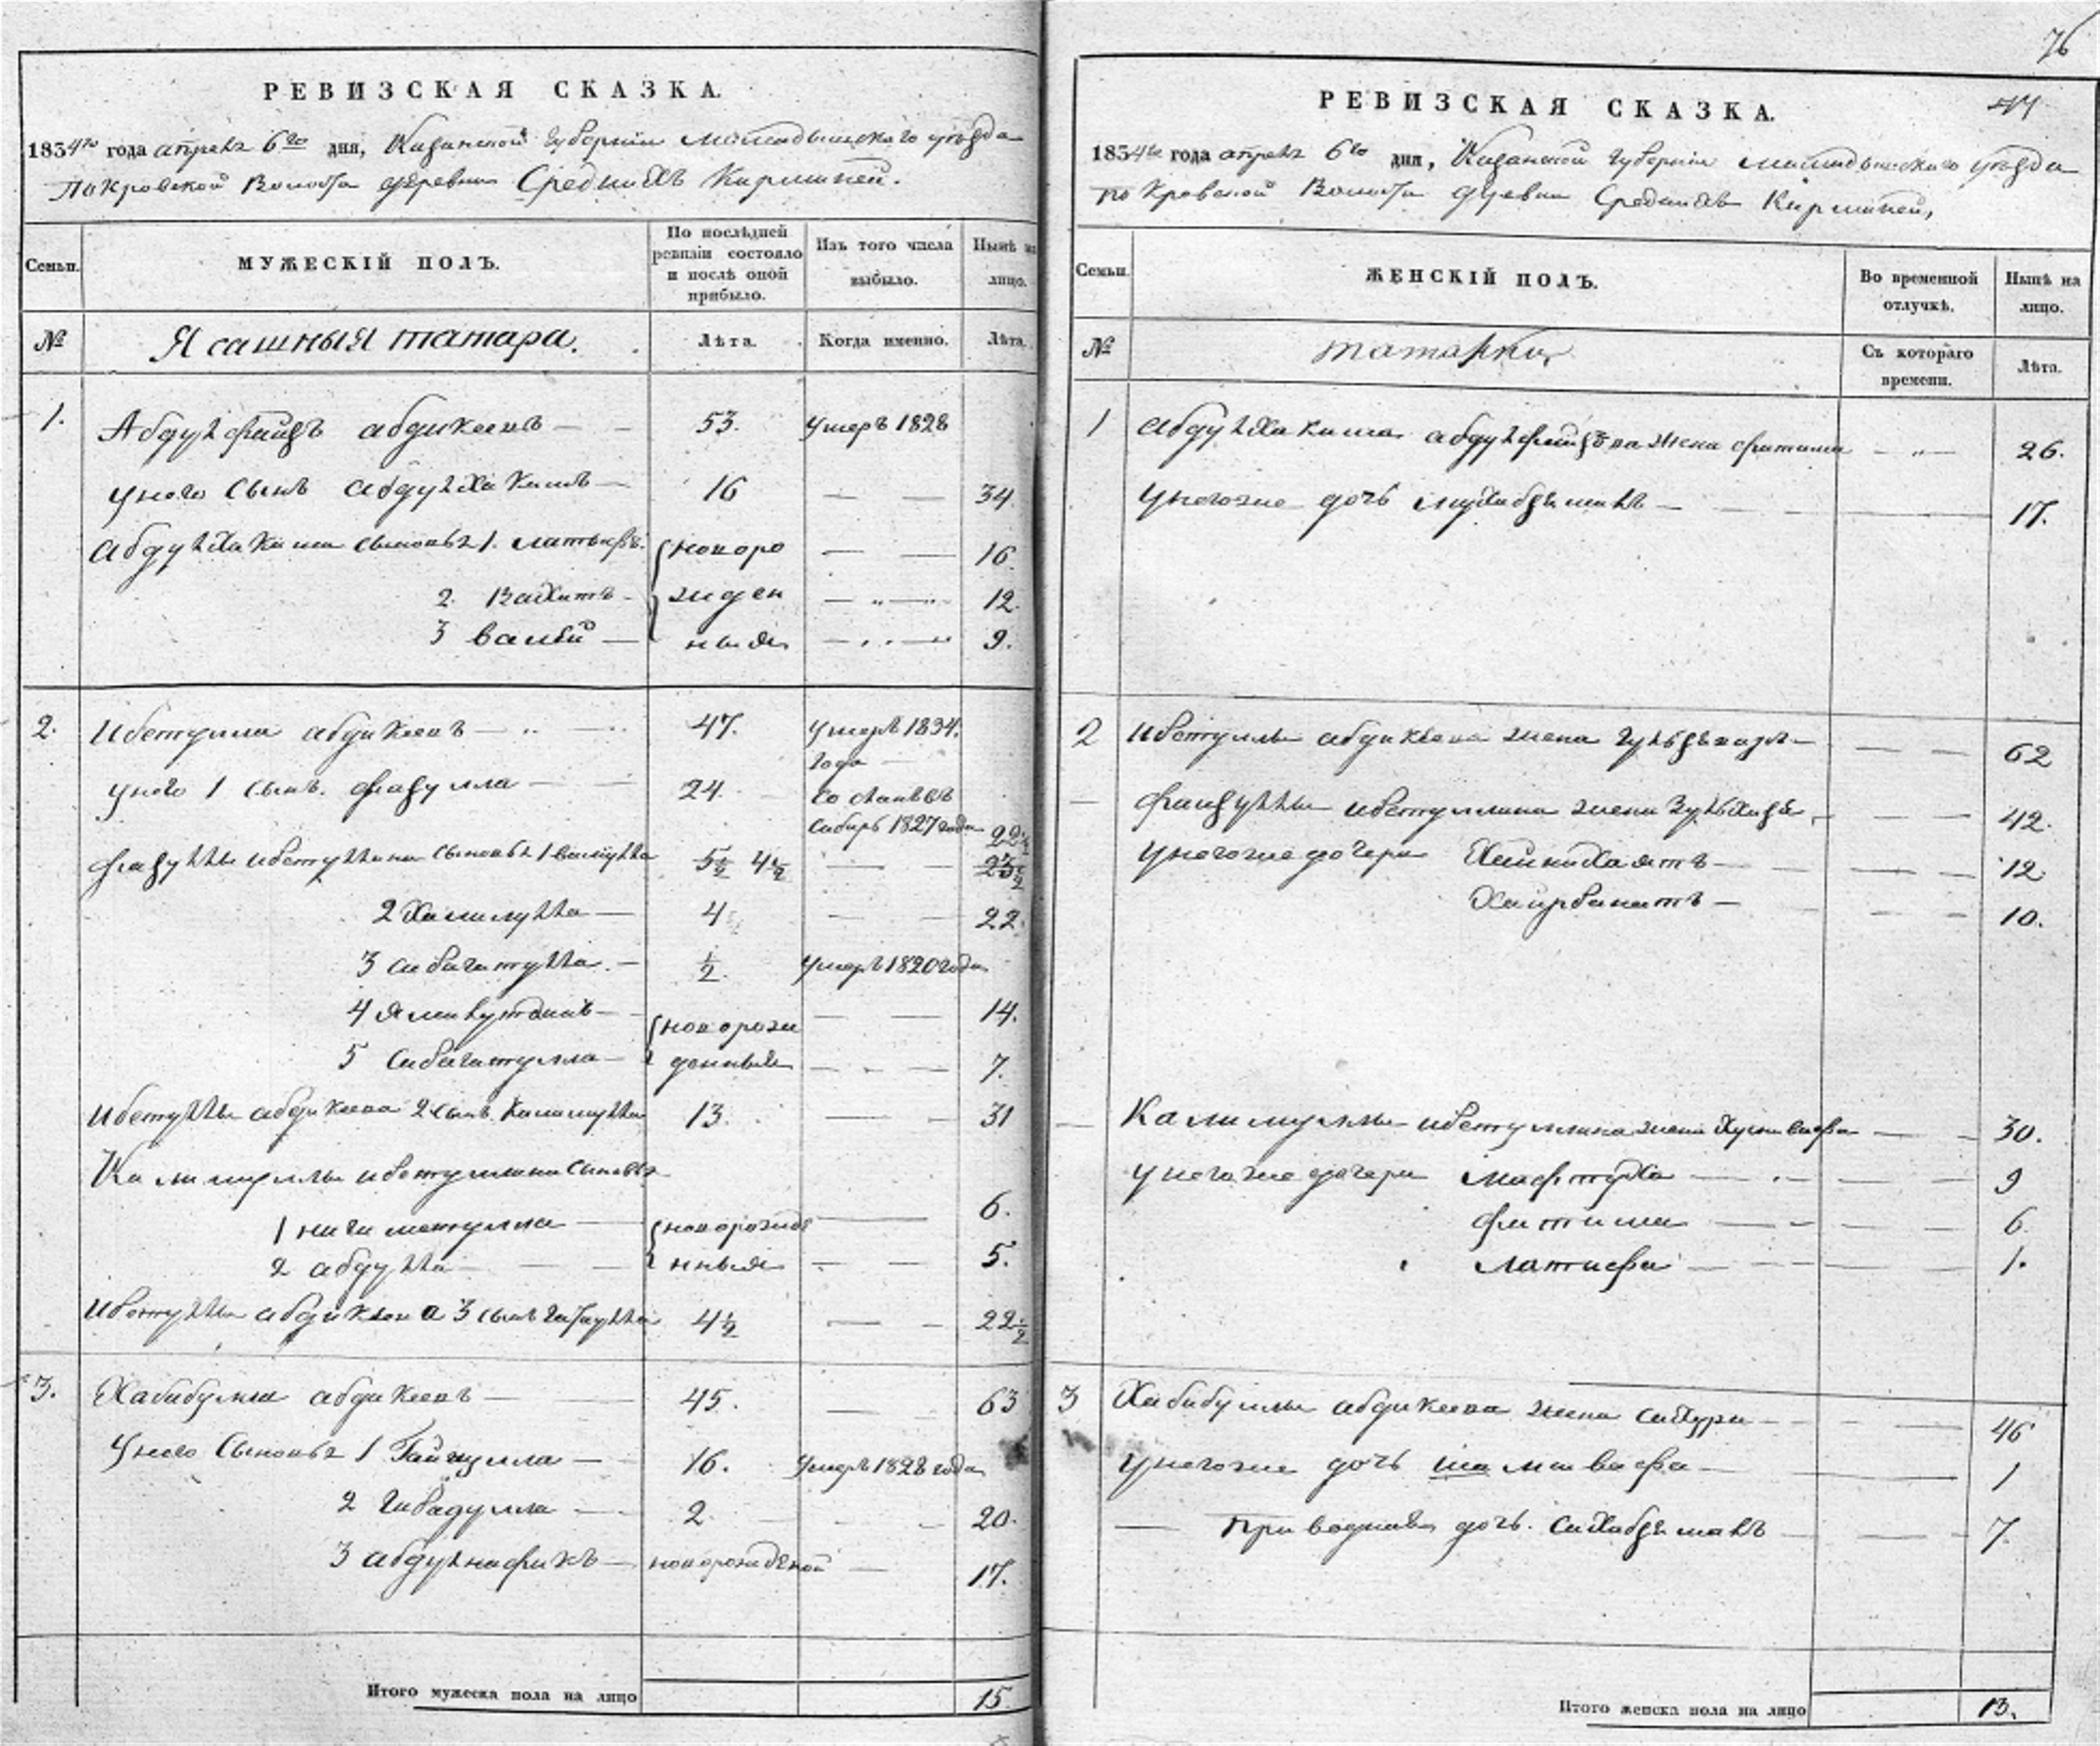 РЕВИЗСКАЯ СКАЗКА.
1834го года апреля 6го дня, Казанской губернии мамадышскаго уезда
Покровской Волости деревни Средних Кирменей.
Семьи.
МУЖЕСКІЙ ПОЛЪ.
По послѣдней ревизіи состояло и послѣ оной прибыло.
Изъ того числа выбыло.
Нынѣ на лицо.
№
Ясашныя татара.
Лѣта.
Когда именно.
Лѣта.
1. Абдулфаизъ абдикеевъ 53. умеръ 1828
У него сынъ абдулхакимъ 16 34
абдулхакима сыновья 1. латыфъ. новоро 16
2. Вахитъ жден 12.
3 валей ныя 9.
2. ибетулла абдикеевъ 47. умеръ 1834.
года
у него 1 сынъ. фазулла 24. сосланъ въ
сибирь 1827 года
22½
фазуллы ибетуллина сыновья 1 валиулла 5½ 4½ 23½
2 Халиулла 4 22.
3 сибагатулла. ½. умеръ 1820 года
4 ямалутдинъ новорож 14.
5 сибагатулла денныя 7.
ибетуллы абдикеева 2 сынъ калимулла 13. 31
Калимуллы ибетуллина сыновья
1 нигаметулла новорожде 6.
2 абдулла нныя 5.
ибетуллы абдикеева 3 сынъ 4½ 22½
3. Хабибулла абдикеевъ 45. 63
У него сыновья 1 Гайнулла 16. умеръ 1828 года
2 гибадулла 2 20.
3 абдулнафикъ новорожденой 17.
Итого мужеска пола на лицо 15.
76
РЕВИЗСКАЯ СКАЗКА.
1834го года апреля 6го дня, Казанской губернии мамадышскаго уезда
покровской Волости деревни Средних Кирменей,
Семьи.
ЖЕНСКІЙ ПОЛЪ.
Во временной отлучкѣ.
Нынѣ на лицо.
№
татарки
Съ котораго времени.
Лѣта.
1 абдулхакима абдулфаизова жена фатима 26.
у него же дочь 17.
2 ибетуллы абдикеева жена 62
фаизуллы ибетуллина жена Зулхиза 42.
у него же дочери 12
Хаирбанатъ 10.
Калимуллы ибетуллина жена 30.
у него же дочери мафтуха 9
фатима 6.
латифа 1.
3 Хабибуллы абдикеева жена сахура 46
у него же дочь 1
приводная дочь. 7.
Итого женска пола на лицо 13.